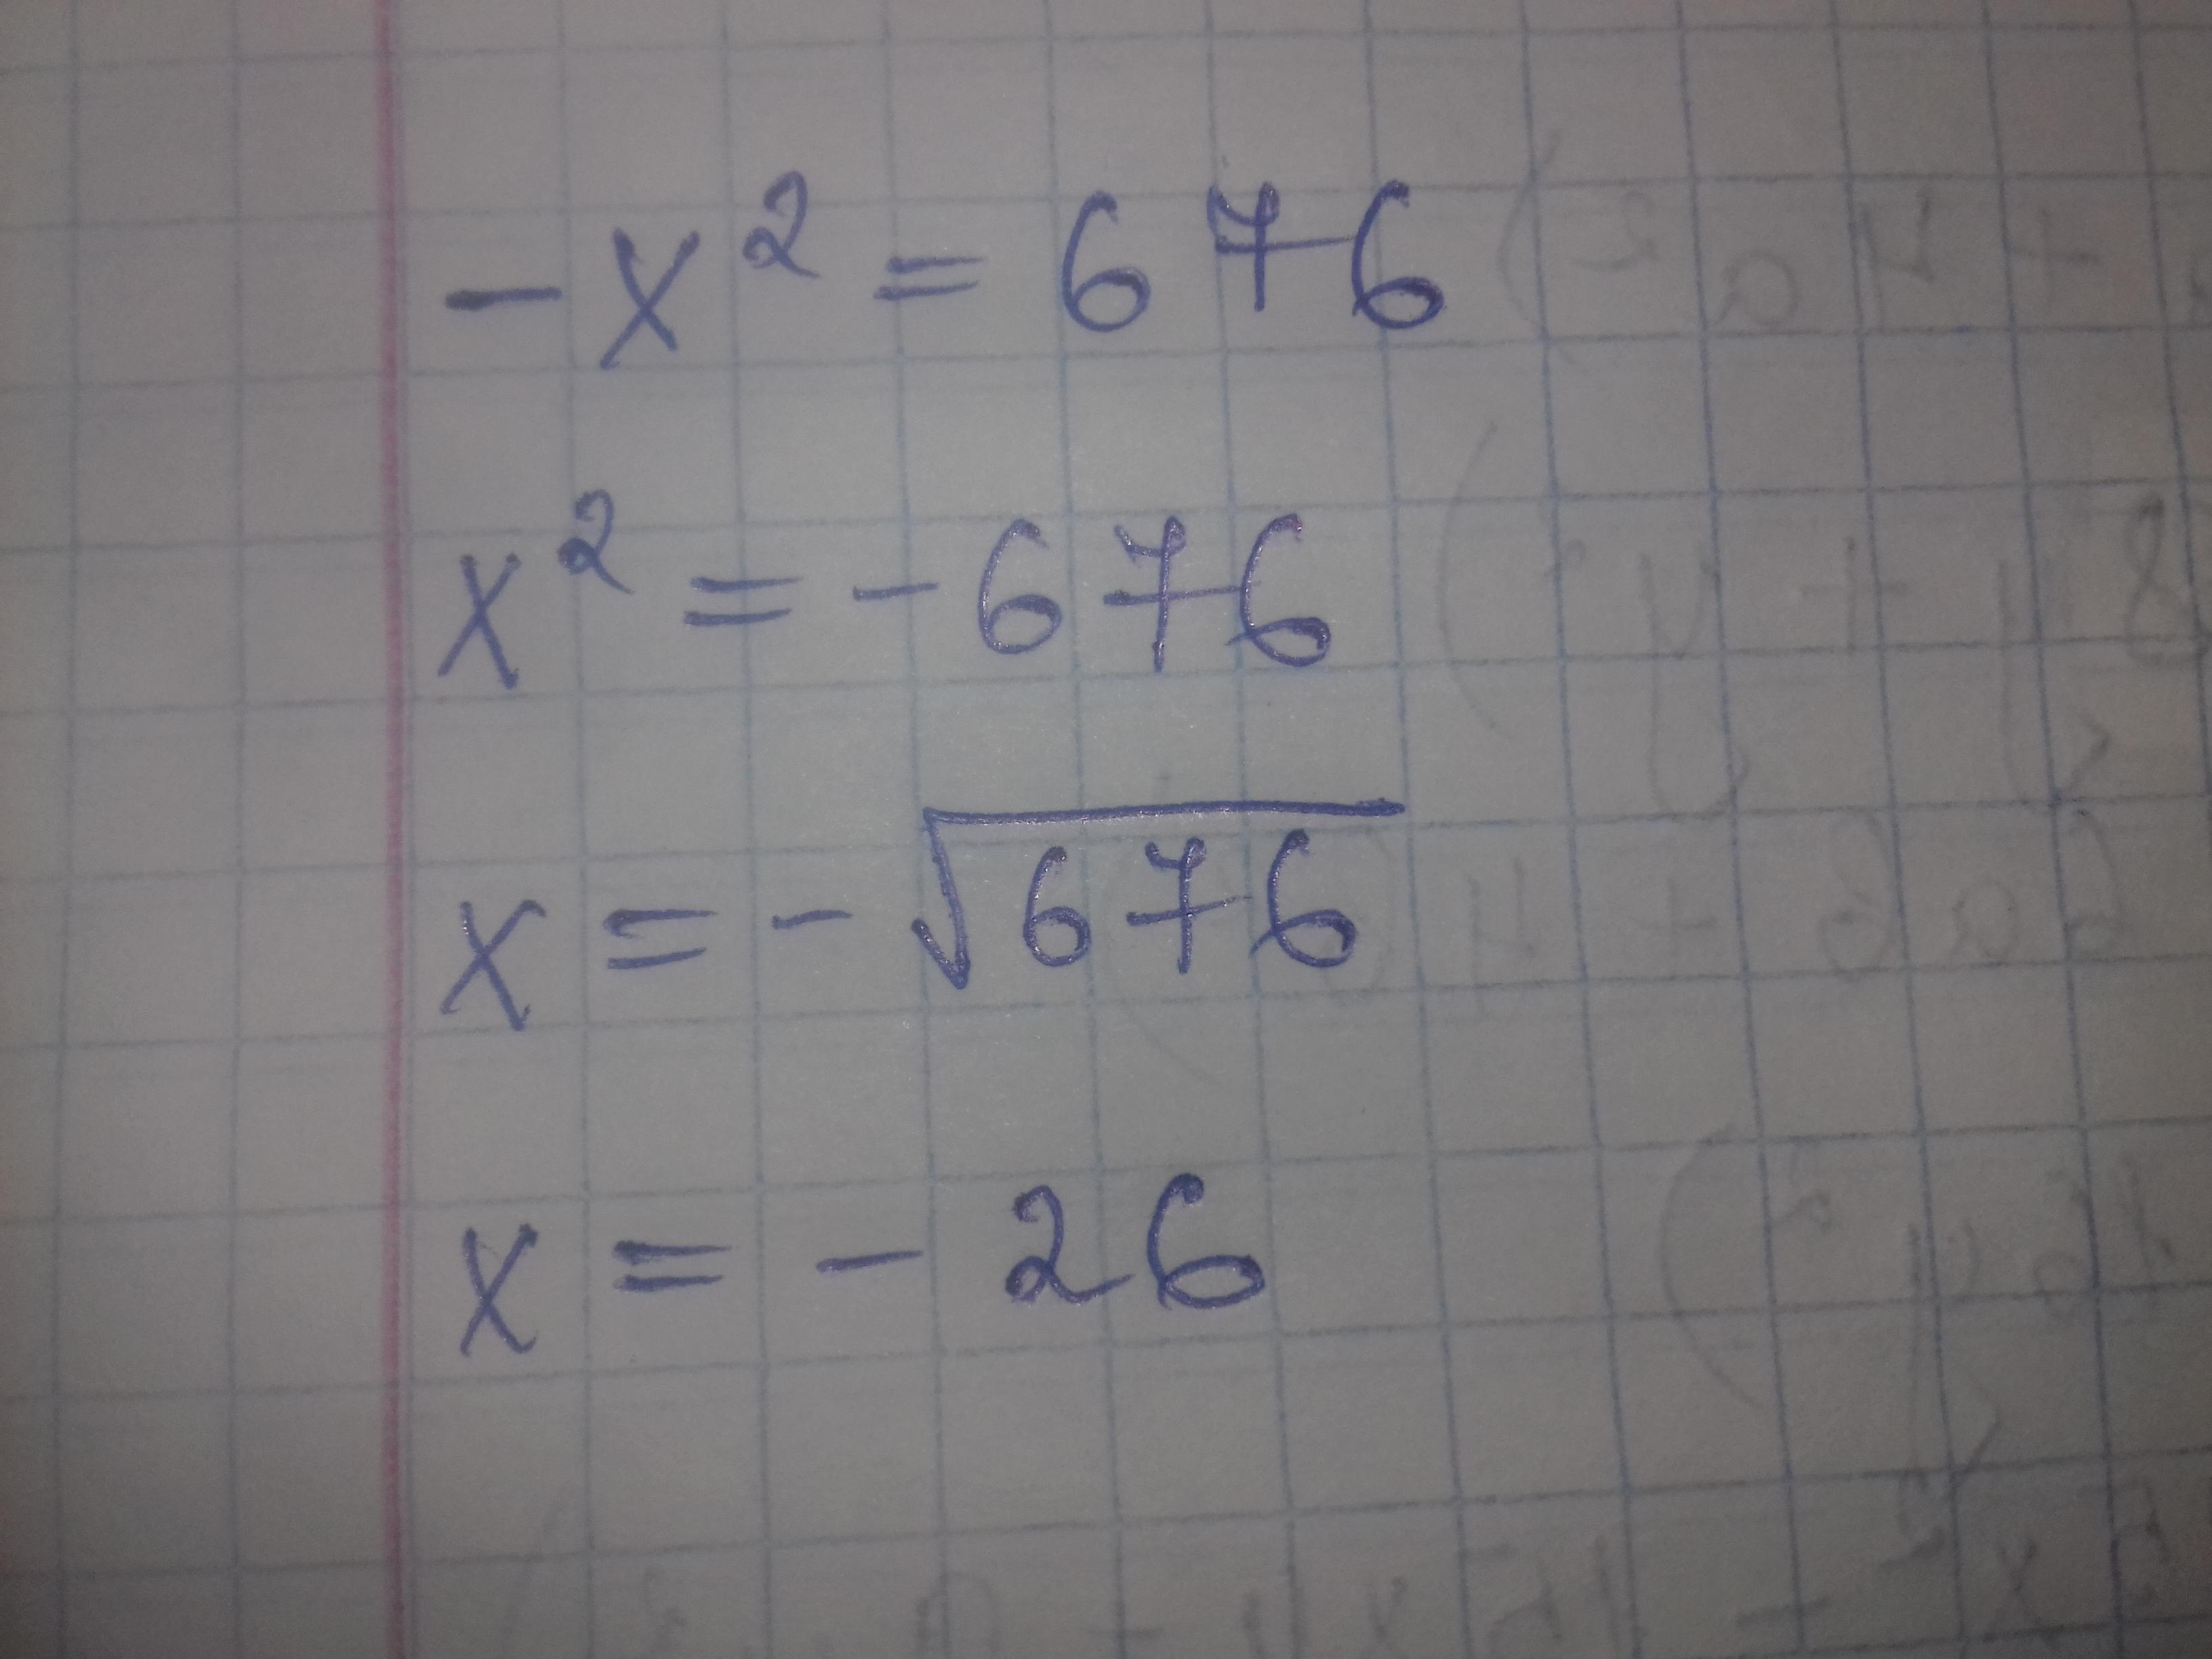 -x² = 676
x² = -676
x = -√676
x = -26